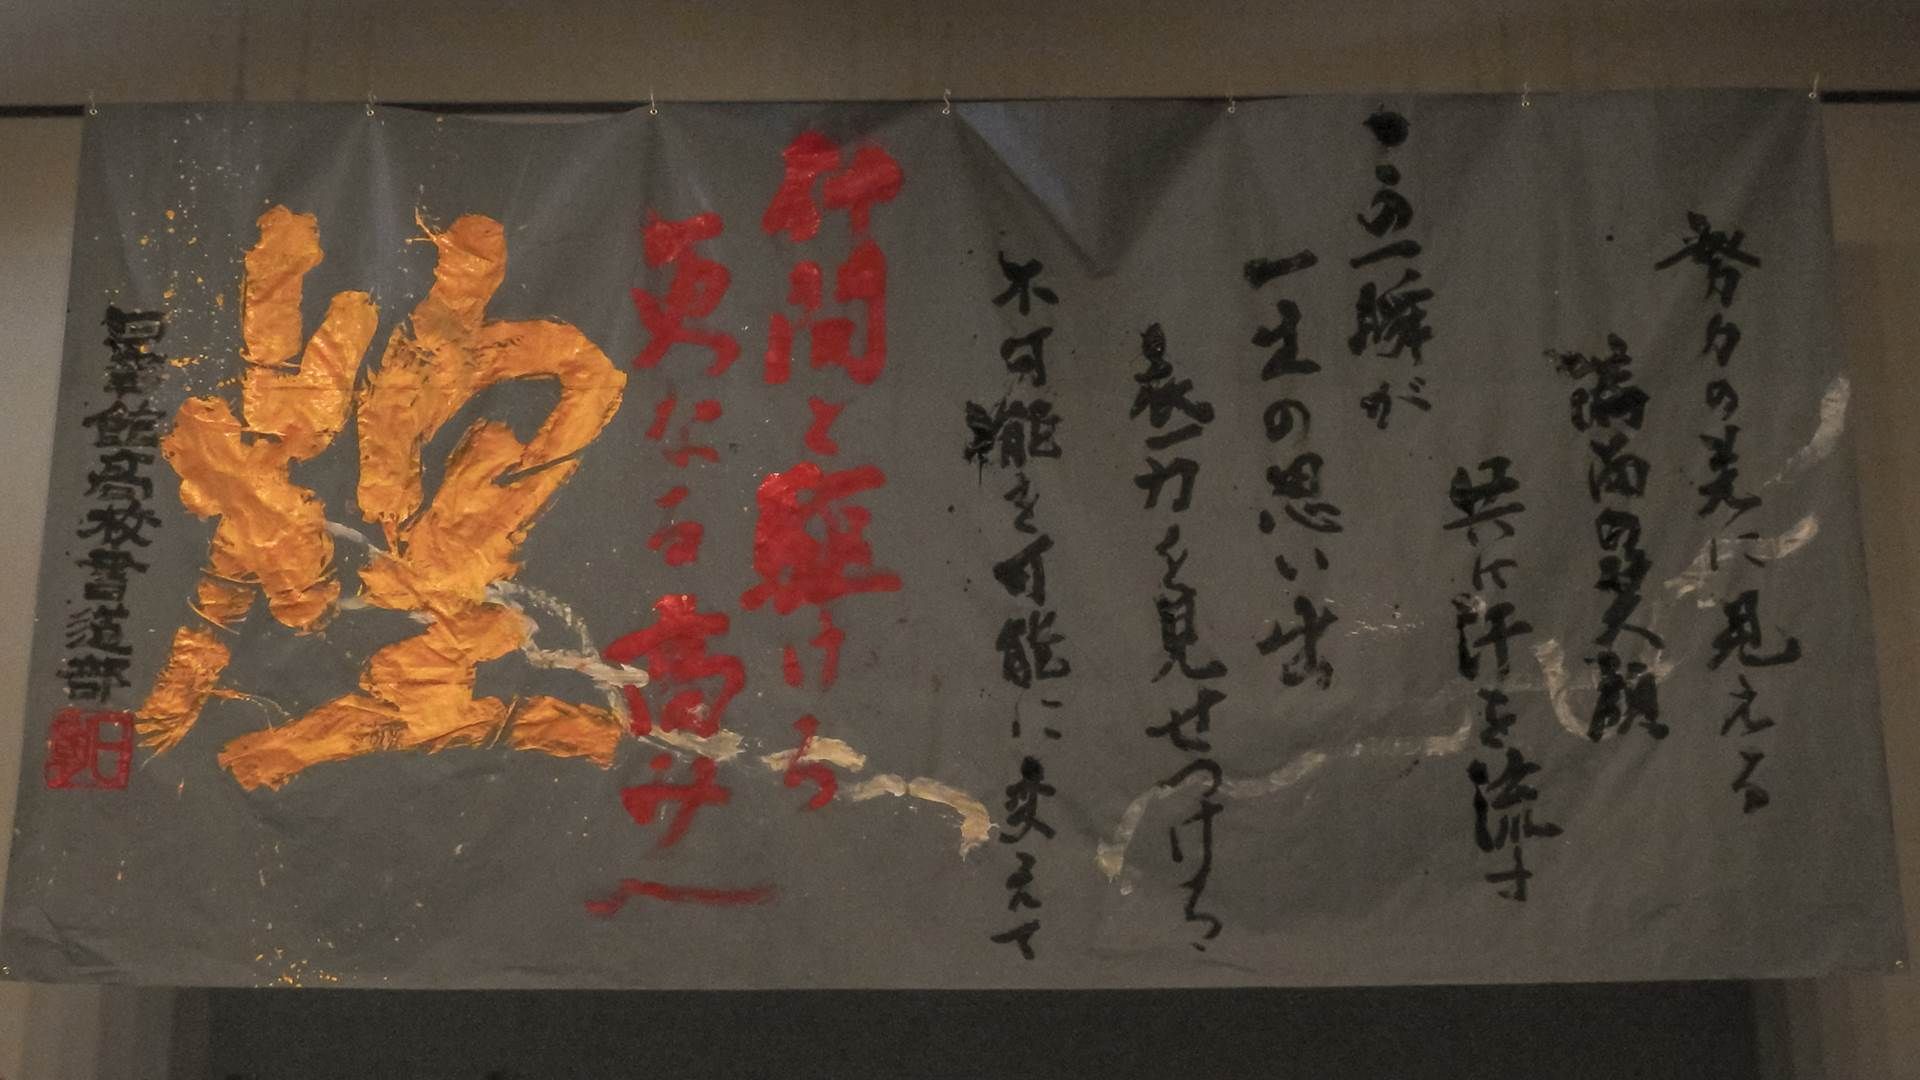 努力の先に見える
満面の笑顔
共に汗を流す
この一瞬が
一生の思い出
力を見せつけろ
不可能を可能に変えて
仲間と駆けろ
更なる高みへ
館高校書道部